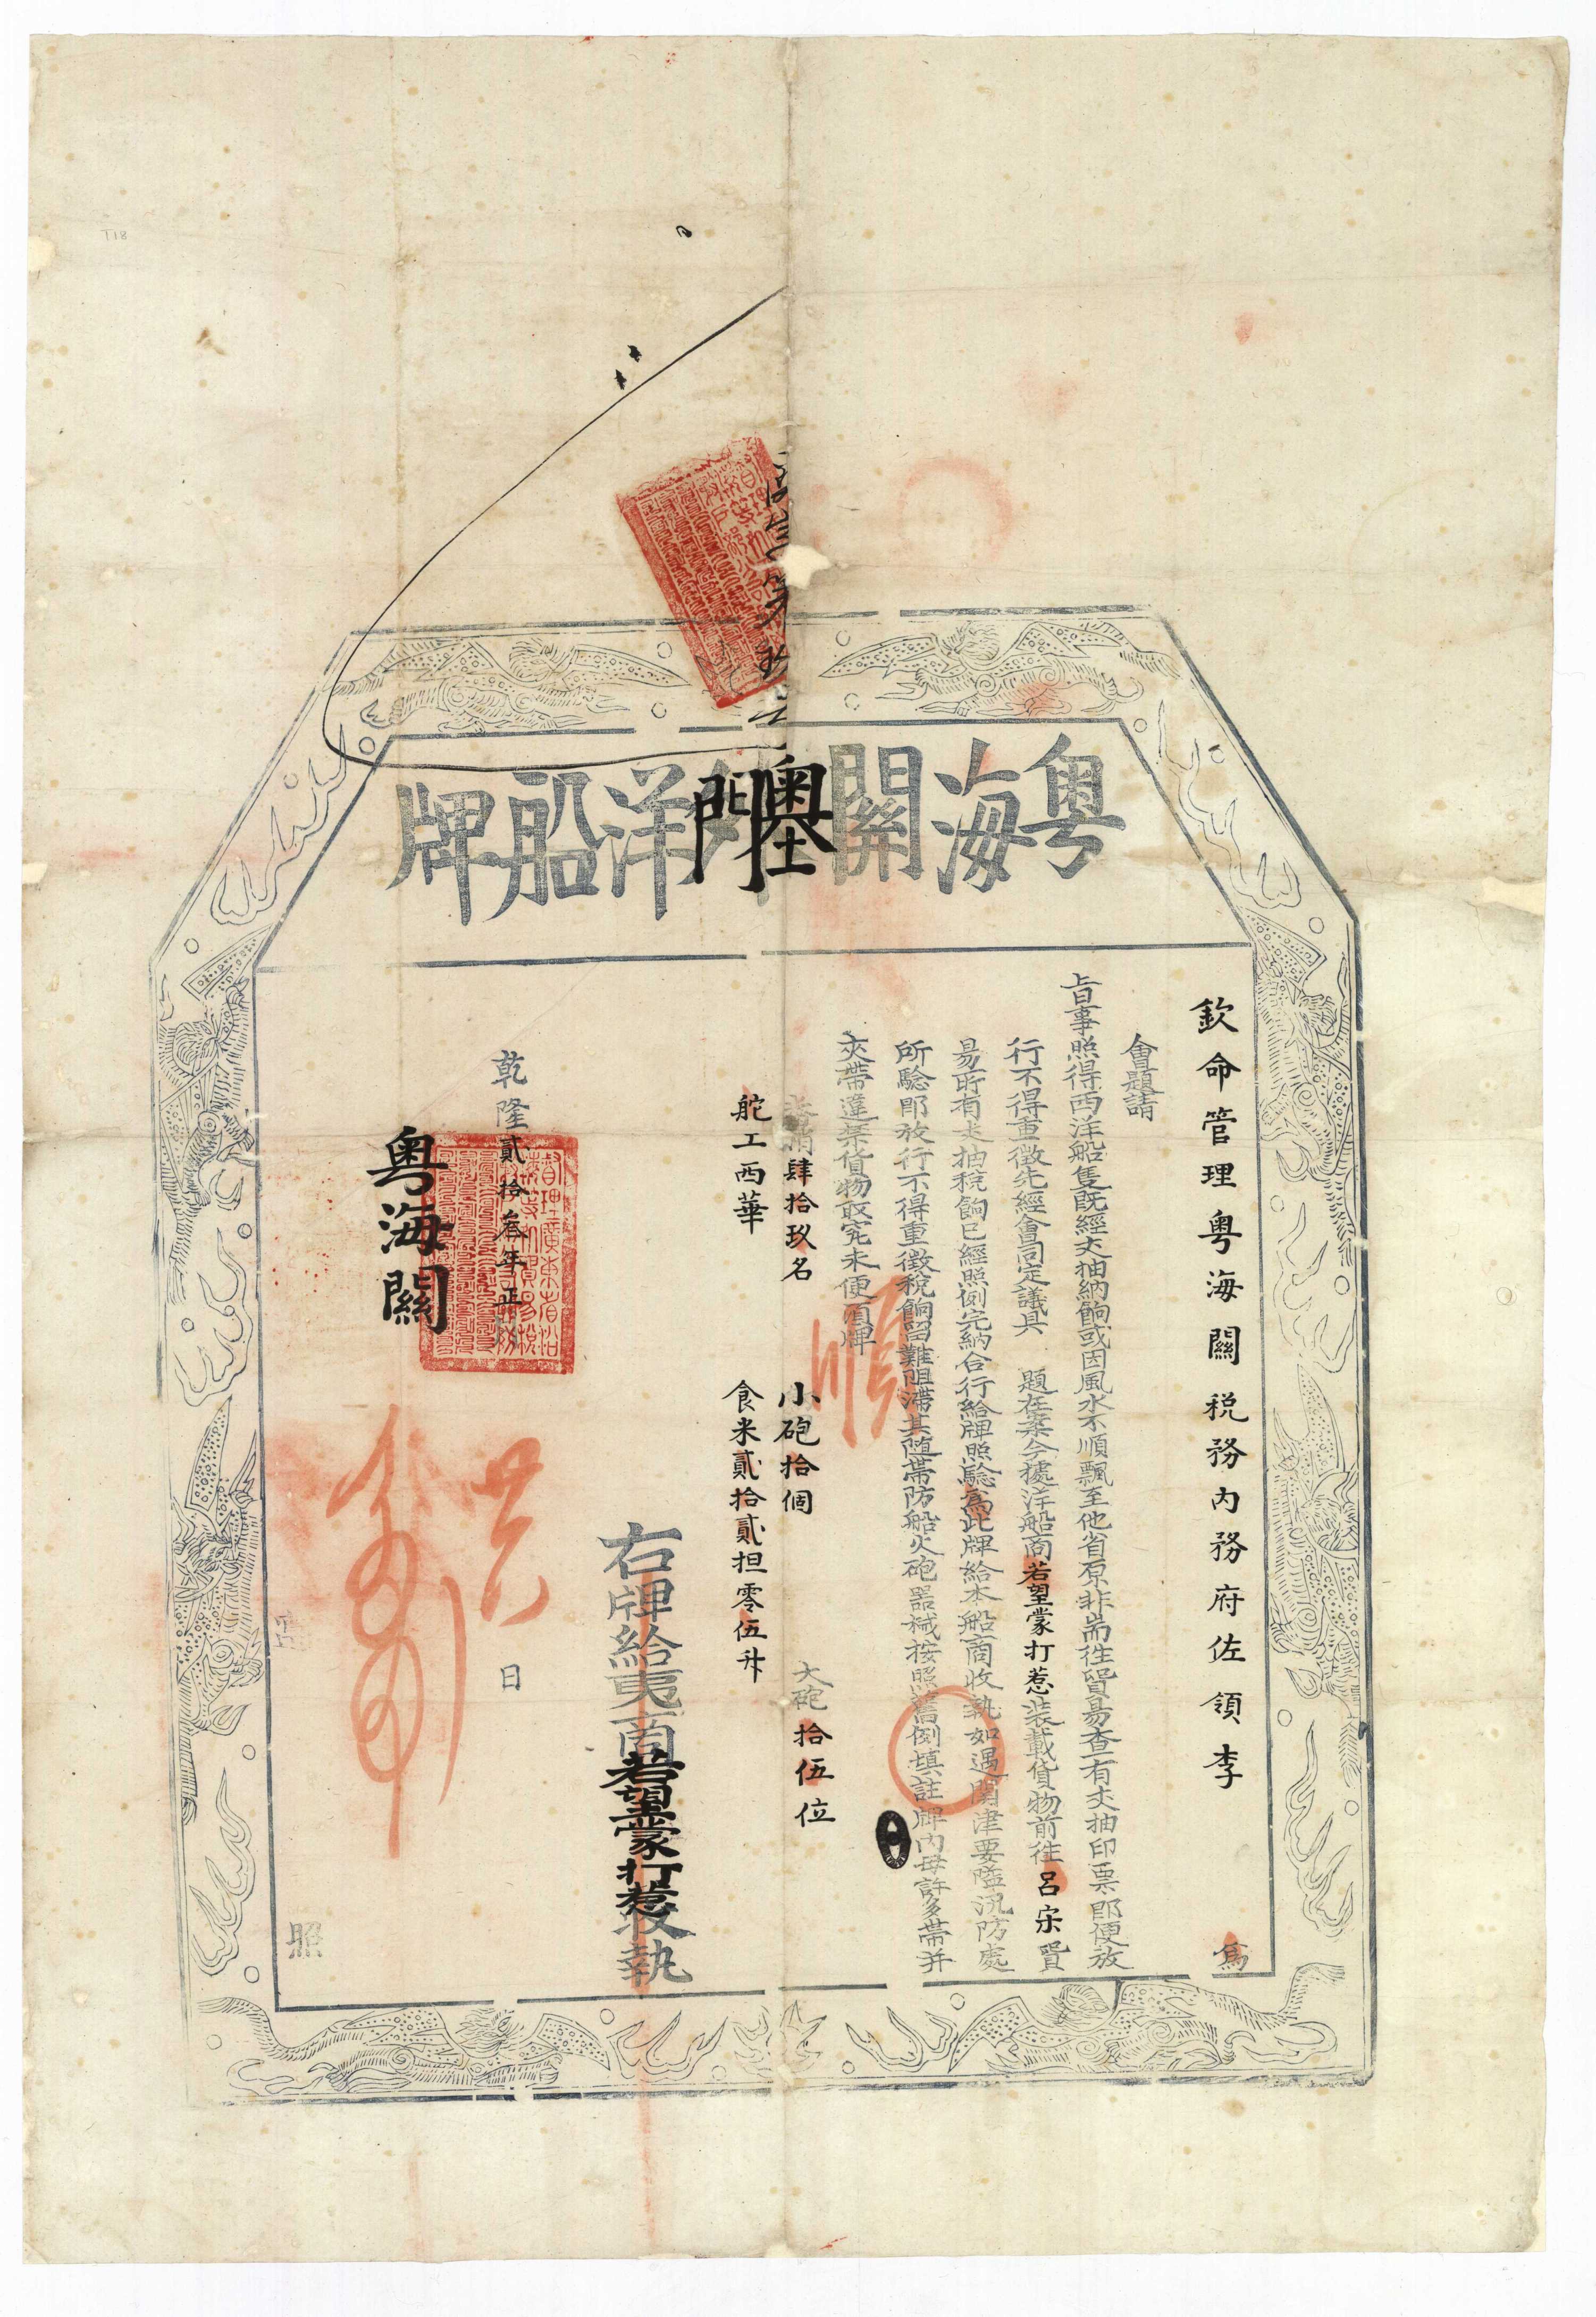 粵海關
洋船牌
欽命管理粵海關稅務內務府佐領李 為
會題請
旨事照得西洋船隻既經丈抽納餉或因風水不順飄至他省原非耑往貿易查有丈抽印票即便放
行不得重徵先經會同定議具 題在案今據洋船商若望蒙打惹装載貨物前往呂宋貿
易所有丈抽稅餉已經照例完納合行給牌照驗為此牌給本船商收執如遇關津要隘汛防處
所驗即放行不得重徵稅餉留難阻滯其隨帶防船火砲器械按照舊例填註牌內毋許多帶并
夾帶違禁貨物取究未便須牌
肆拾玖名 小砲拾個 大砲拾伍位
舵工西華 食米貳拾貳担零伍升
右牌給夷商若望蒙打惹收執
乾隆貳拾叁年正月 日
粵海關
照
T18